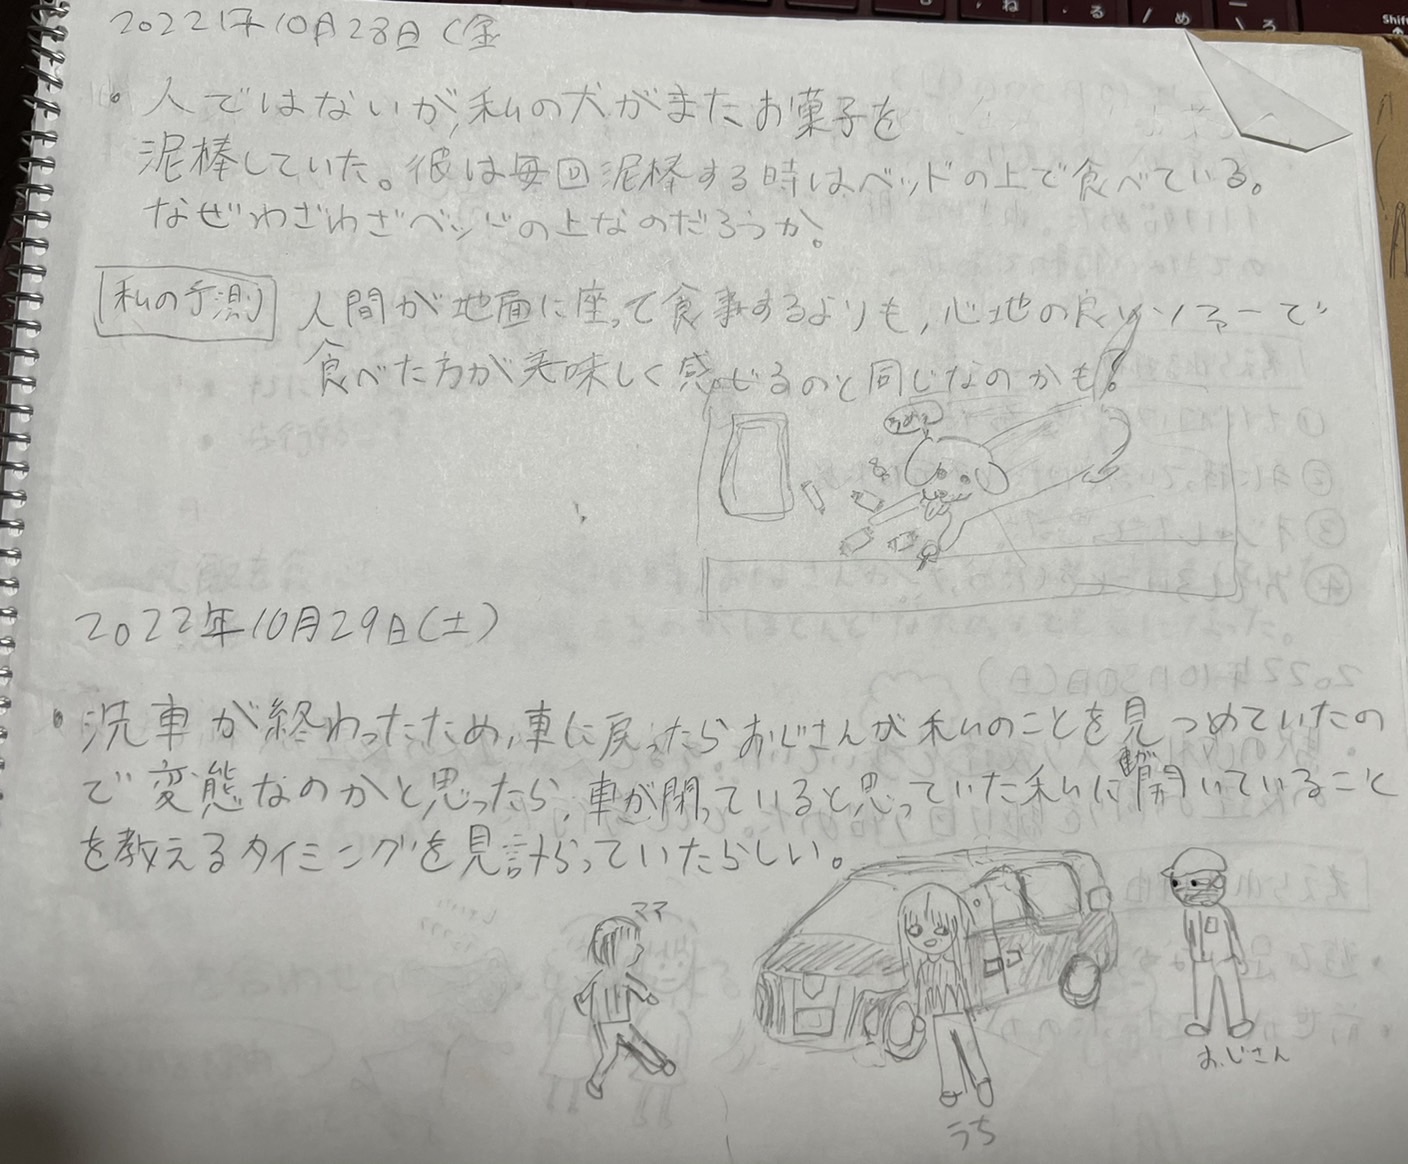 2022年10月28日(金
・人ではないが,私の犬がまたお菓子を
泥棒していた。彼は毎回泥棒する時はベッドの上で食べている。
なぜわざわざベッドの上なのだろうか。
私の予測 人間が地面に座って食事するよりも,心地の良いソファーで
食べた方が美味しく感ぜるのと同じなのかも?
うめぇ
2022年10月29日(土)
・洗車が終わったため,車に戻ったらおじさんが私のことを見つめていたの
で変態なのかと思ったら,車が閉っていると思っていた私に車が開いていること
を教えるタイミングを見計らっていたらしい。
ママ
おじさん
うち